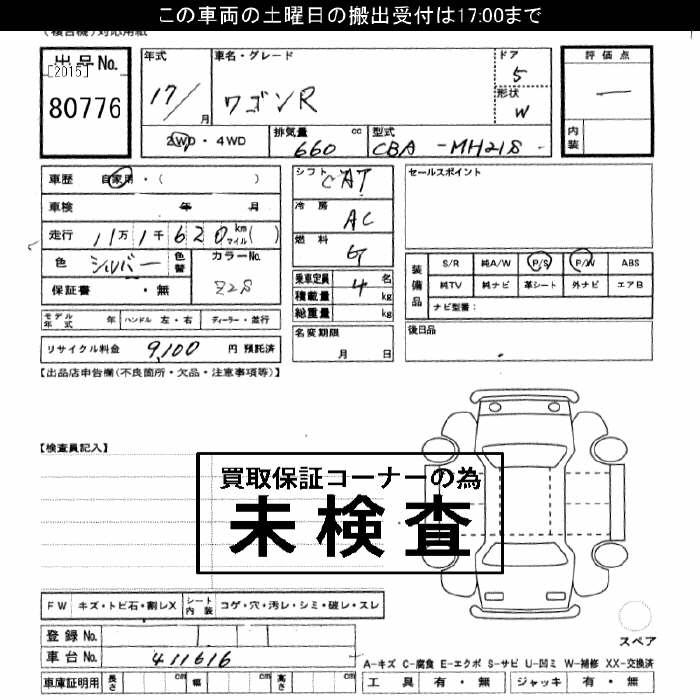 この車両の土曜日の搬出受付は17:00まで
(複合機)対応用紙
出品No.
[2015]
80776
年式
17/
月
車名・グレード
ワゴンR
ドア
5
形状
W
評価点
一
内装
2WD・4WD
排気量
660
cc
型式
CBA -MH21S
車歴 自家用・( )
車検 年 月
走行 11万1千620km(マイル)( )
色 シルバー 色替
カラーNo.
Z2S
保証書 ・無
モデル年式 年 ハンドル 左・右 ディーラー・並行
リサイクル料金 9,100 円 預託済
シフト CAT
冷房 AC
燃料 G
乗車定員 4 名
積載量 kg
総重量 kg
名変期限
月 日
セールスポイント
装備品
S/R 純A/W P/S P/W ABS
純TV 純ナビ 革シート 外ナビ エアB
ナビ型番:
後日品
【出品店申告欄(不良箇所・欠品・注意事項等)】
【検査員記入】
買取保証コーナーの為
未検査
FW キズ・トビ石・割レX シート内装 コゲ・穴・汚レ・シミ・破レ・スレ
登録No.
車台No. 411616
車庫証明用 長さ cm 幅 cm 高さ cm
スペア
A-キズ C-腐食 E-エクボ S-サビ U-凹ミ W-補修 XX-交換済
工具 有・無 ジャッキ 有・無